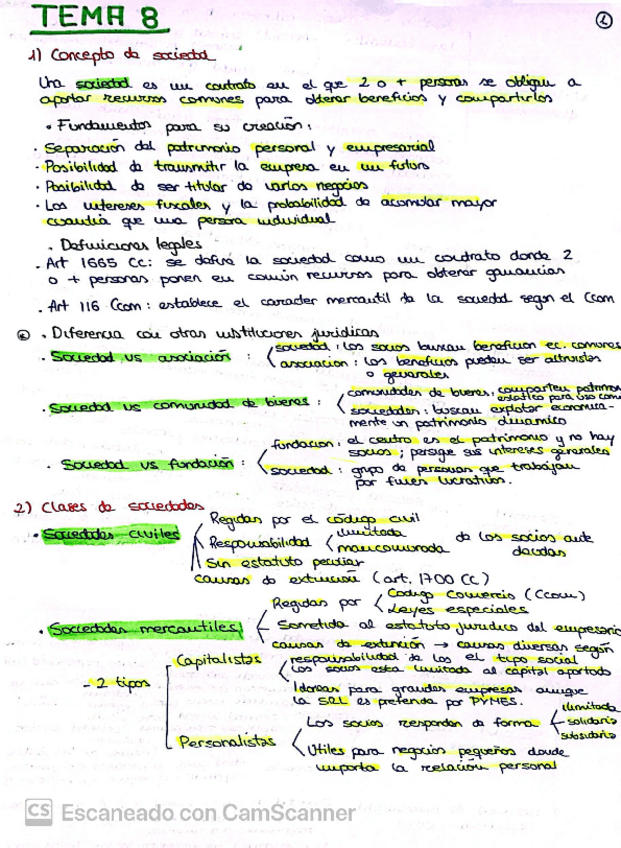 TEMA 8
1
1) Concepto de sociedad
Una sociedad es un contrato en el que 2 o + personas se obligan a
aportar recursos comunes para obtener beneficios y compartirlos
• Fundamentos para su creación:
· Separación del patrimonio personal y empresarial
· Posibilidad de transmitir la empresa en un futuro
· Posibilidad de ser titular de varios negocios
· Los intereses fiscales y la probabilidad de acumular mayor
cuantía que una persona individual
• Definiciones legales
· Art 1665 CC: se define la sociedad como un contrato donde 2
o + personas ponen en común recursos para obtener ganancias
· Art 116 CCom: establece el caracter mercantil de la sociedad segun el CCom
• Diferencia con otras instituciones juridicas
· Sociedad vs asociación : sociedad: los socios buscan beneficios ec. comunes
asociacion: los beneficios pueden ser altruistas
o generales
· Sociedad vs comunidad de bienes: comunidades de bienes: comparten patrimon
estatico para uso com
sociedades: buscan explotar economica-
mente un patrimonio dinamico
· Sociedad vs fundación : fundacion: el centro es el patrimonio y no hay
socios; persigue sus intereses generales
sociedad: grupo de personas que trabajan
por fines lucrativos.
2) Clases de sociedades
· Sociedades civiles
Regidas por el código civil
Responsabilidad ilimitada mancomunada de los socios ante deudas
Sin estatuto peculiar
causas de extincion (art. 1700 CC)
· Sociedades mercantiles
Regidas por Codigo Comercio (CCom)
Leyes especiales
Sometida al estatuto juridico del empresario
causas de extinción → causas diversas según
el tipo social
- 2 tipos
Capitalistas
responsabilidad de los
los socios esta limitada al capital aportado
Idoneas para grandes empresas aunque
la SRL es preferida por PYMES.
Personalistas
Los socios responden de forma ilimitada
solidaria
subsidiaria
Utiles para negocios pequeños donde
importa la relación personal
CS Escaneado con CamScanner